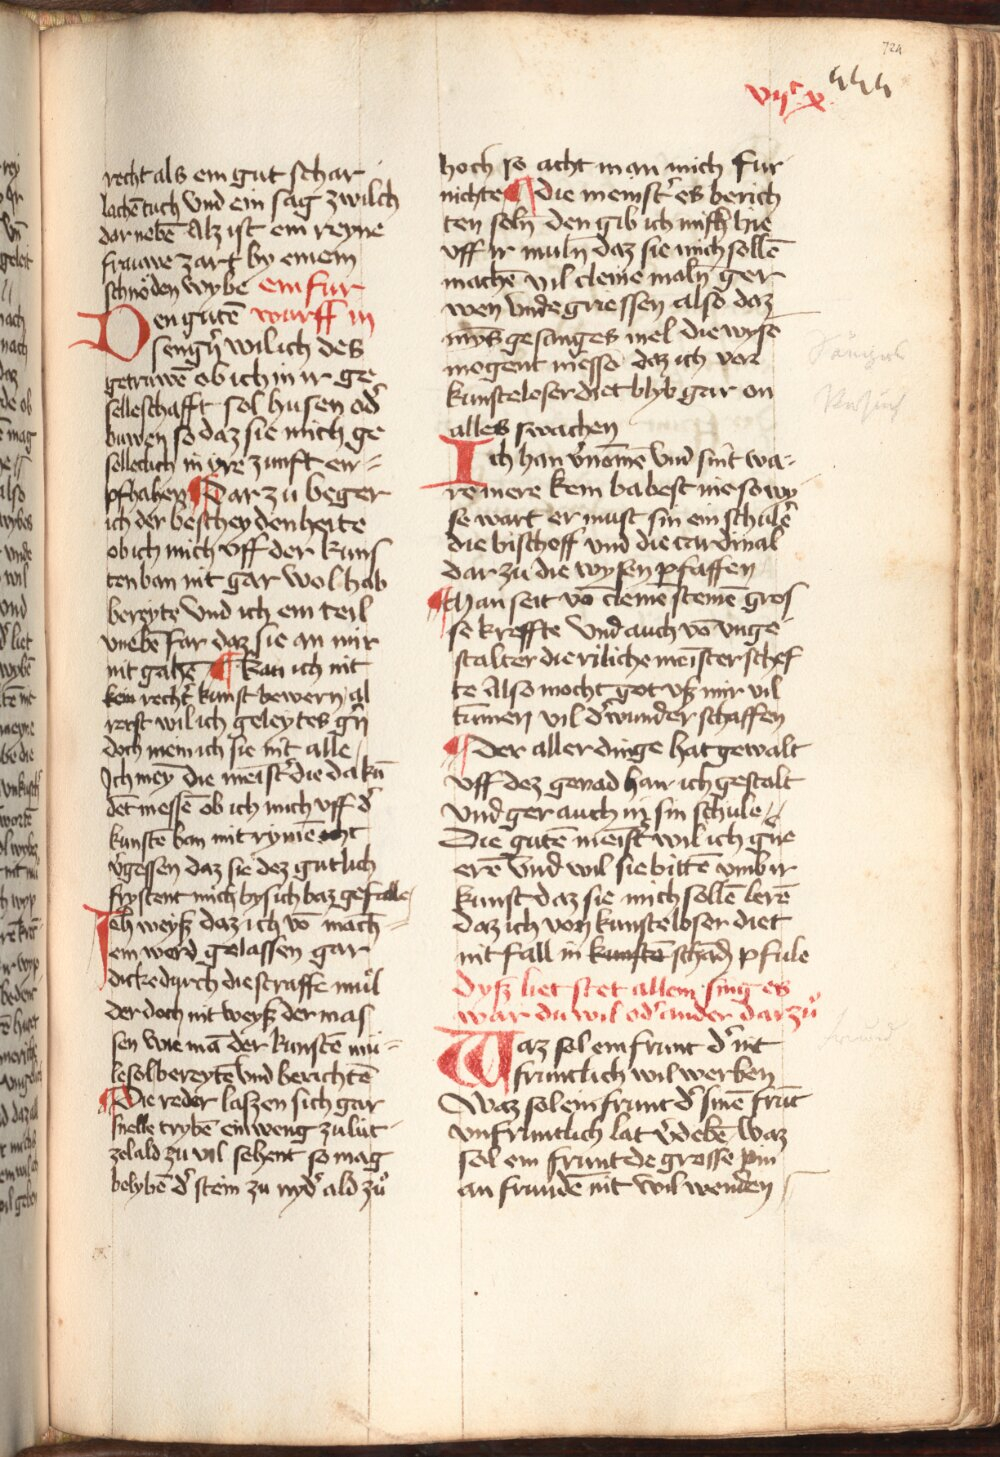 724
vijc x
555
recht als ein gut schar
lachē tuch vnd ein sag zwilch
dar nebē Alz ist ein reyne
frauwe zart by einem
schnöden wybe ein fur
Den gutē wurff in
sengñ wil ich des
getruwē ob ich in ir ge
selleschafft sol husen od'
buwen so daz sie mich ge
selleclich in yre zunft en=
pfhahen ¶ Dar zu beger
ich der bescheydenheite
ob ich mich vff der kuns
ten ban nit gar wol hab
bereyte vnd ich ein teil
vnebē far daz sie an mir
nit gahē ¶ kan ich nit
kein recht' kunst bewern al
rerst wil ich geleytes gñ
doch mein ich sie nit alle
Ich mey die meist' die da kūd
det messē ob ich mich vff d'
kunstē ban mit rymē icht
v'gessen daz sie dez gutlich
frystent mich by sich baz gefalle
Ich weyß daz ich vō mach=
em werd gelassen gar
dicke durch die straffe mul
der doch nit weyß der mas
sen wie mā der kunstē mu=
le sol bereytē vnd berichtē
¶ Die reder laszen sich gar
snelle trybē ein weng zu lut
zel ald zu vil sehent so mag
belybē d' stein zu nyd' ald zů
hoch is acht man mich fur
nichte ¶ die meinst' es berich
ten soln den gib ich mich hie
vff ir muln daz sie mich sollē
machē vil cleine maln ger
wen vnde griessen also daz
myns gesanges mel die wysē
mogent niesse daz ich vor
kunsteloser diet blyb gar on
alles swachen
Ich han v'nomē vnd sint wa=
re mere kein babest nie so wy
se wart er must sin ein schulē
die bischoff vnd die cardinal
dar zu die wysen pfaffen
¶ Man seit vō cleinē steinē gros
se kreffte vnd auch vō vnge
stalter die riliche meister schef
te Also mocht got vß mir vil
tummen vil d' wunder schaffen
¶ Der aller dinge hat gewalt
vff dez genad han ich gestalt
vnd ger auch in sin schule
Die gutē meist' wil ich gñe
erē vnd wil sie bittē vmb ir
kunst daz sie mich sollē lerē
daz ich von kunsteloser diet
nit fall in kunstē schand pfule
dyß liet stet allein sing es
war du wil od' ander dar zů
Waz sol ein frunt d' nit
fruntlich wil werben
Waz sol ein frunt d' sinē frūt
vnfruntlich lat v'debē waz
sol ein frunt de grosse pin
an frundē nit wil wenden